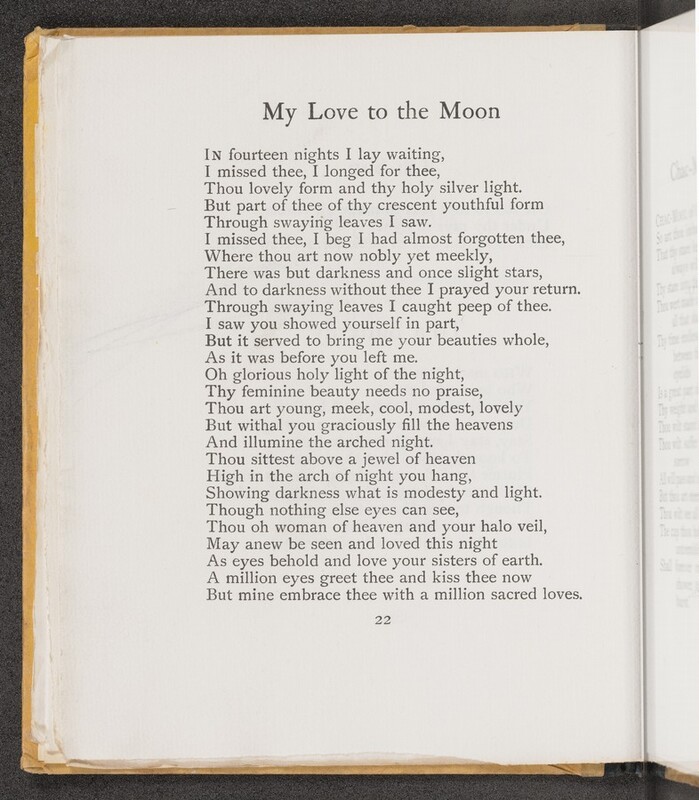 My Love to the Moon
IN fourteen nights I lay waiting,
I missed thee, I longed for thee,
Thou lovely form and thy holy silver light.
But part of thee of thy crescent youthful form
Through swaying leaves I saw.
I missed thee, I beg I had almost forgotten thee,
Where thou art now nobly yet meekly,
There was but darkness and once slight stars,
And to darkness without thee I prayed your return.
Through swaying leaves I caught peep of thee.
I saw you showed yourself in part,
But it served to bring me your beauties whole,
As it was before you left me.
Oh glorious holy light of the night,
Thy feminine beauty needs no praise,
Thou art young, meek, cool, modest, lovely
But withal you graciously fill the heavens
And illumine the arched night.
Thou sittest above a jewel of heaven
High in the arch of night you hang,
Showing darkness what is modesty and light.
Though nothing else eyes can see,
Thou oh woman of heaven and your halo veil,
May anew be seen and loved this night
As eyes behold and love your sisters of earth.
A million eyes greet thee and kiss thee now
But mine embrace thee with a million sacred loves.
22